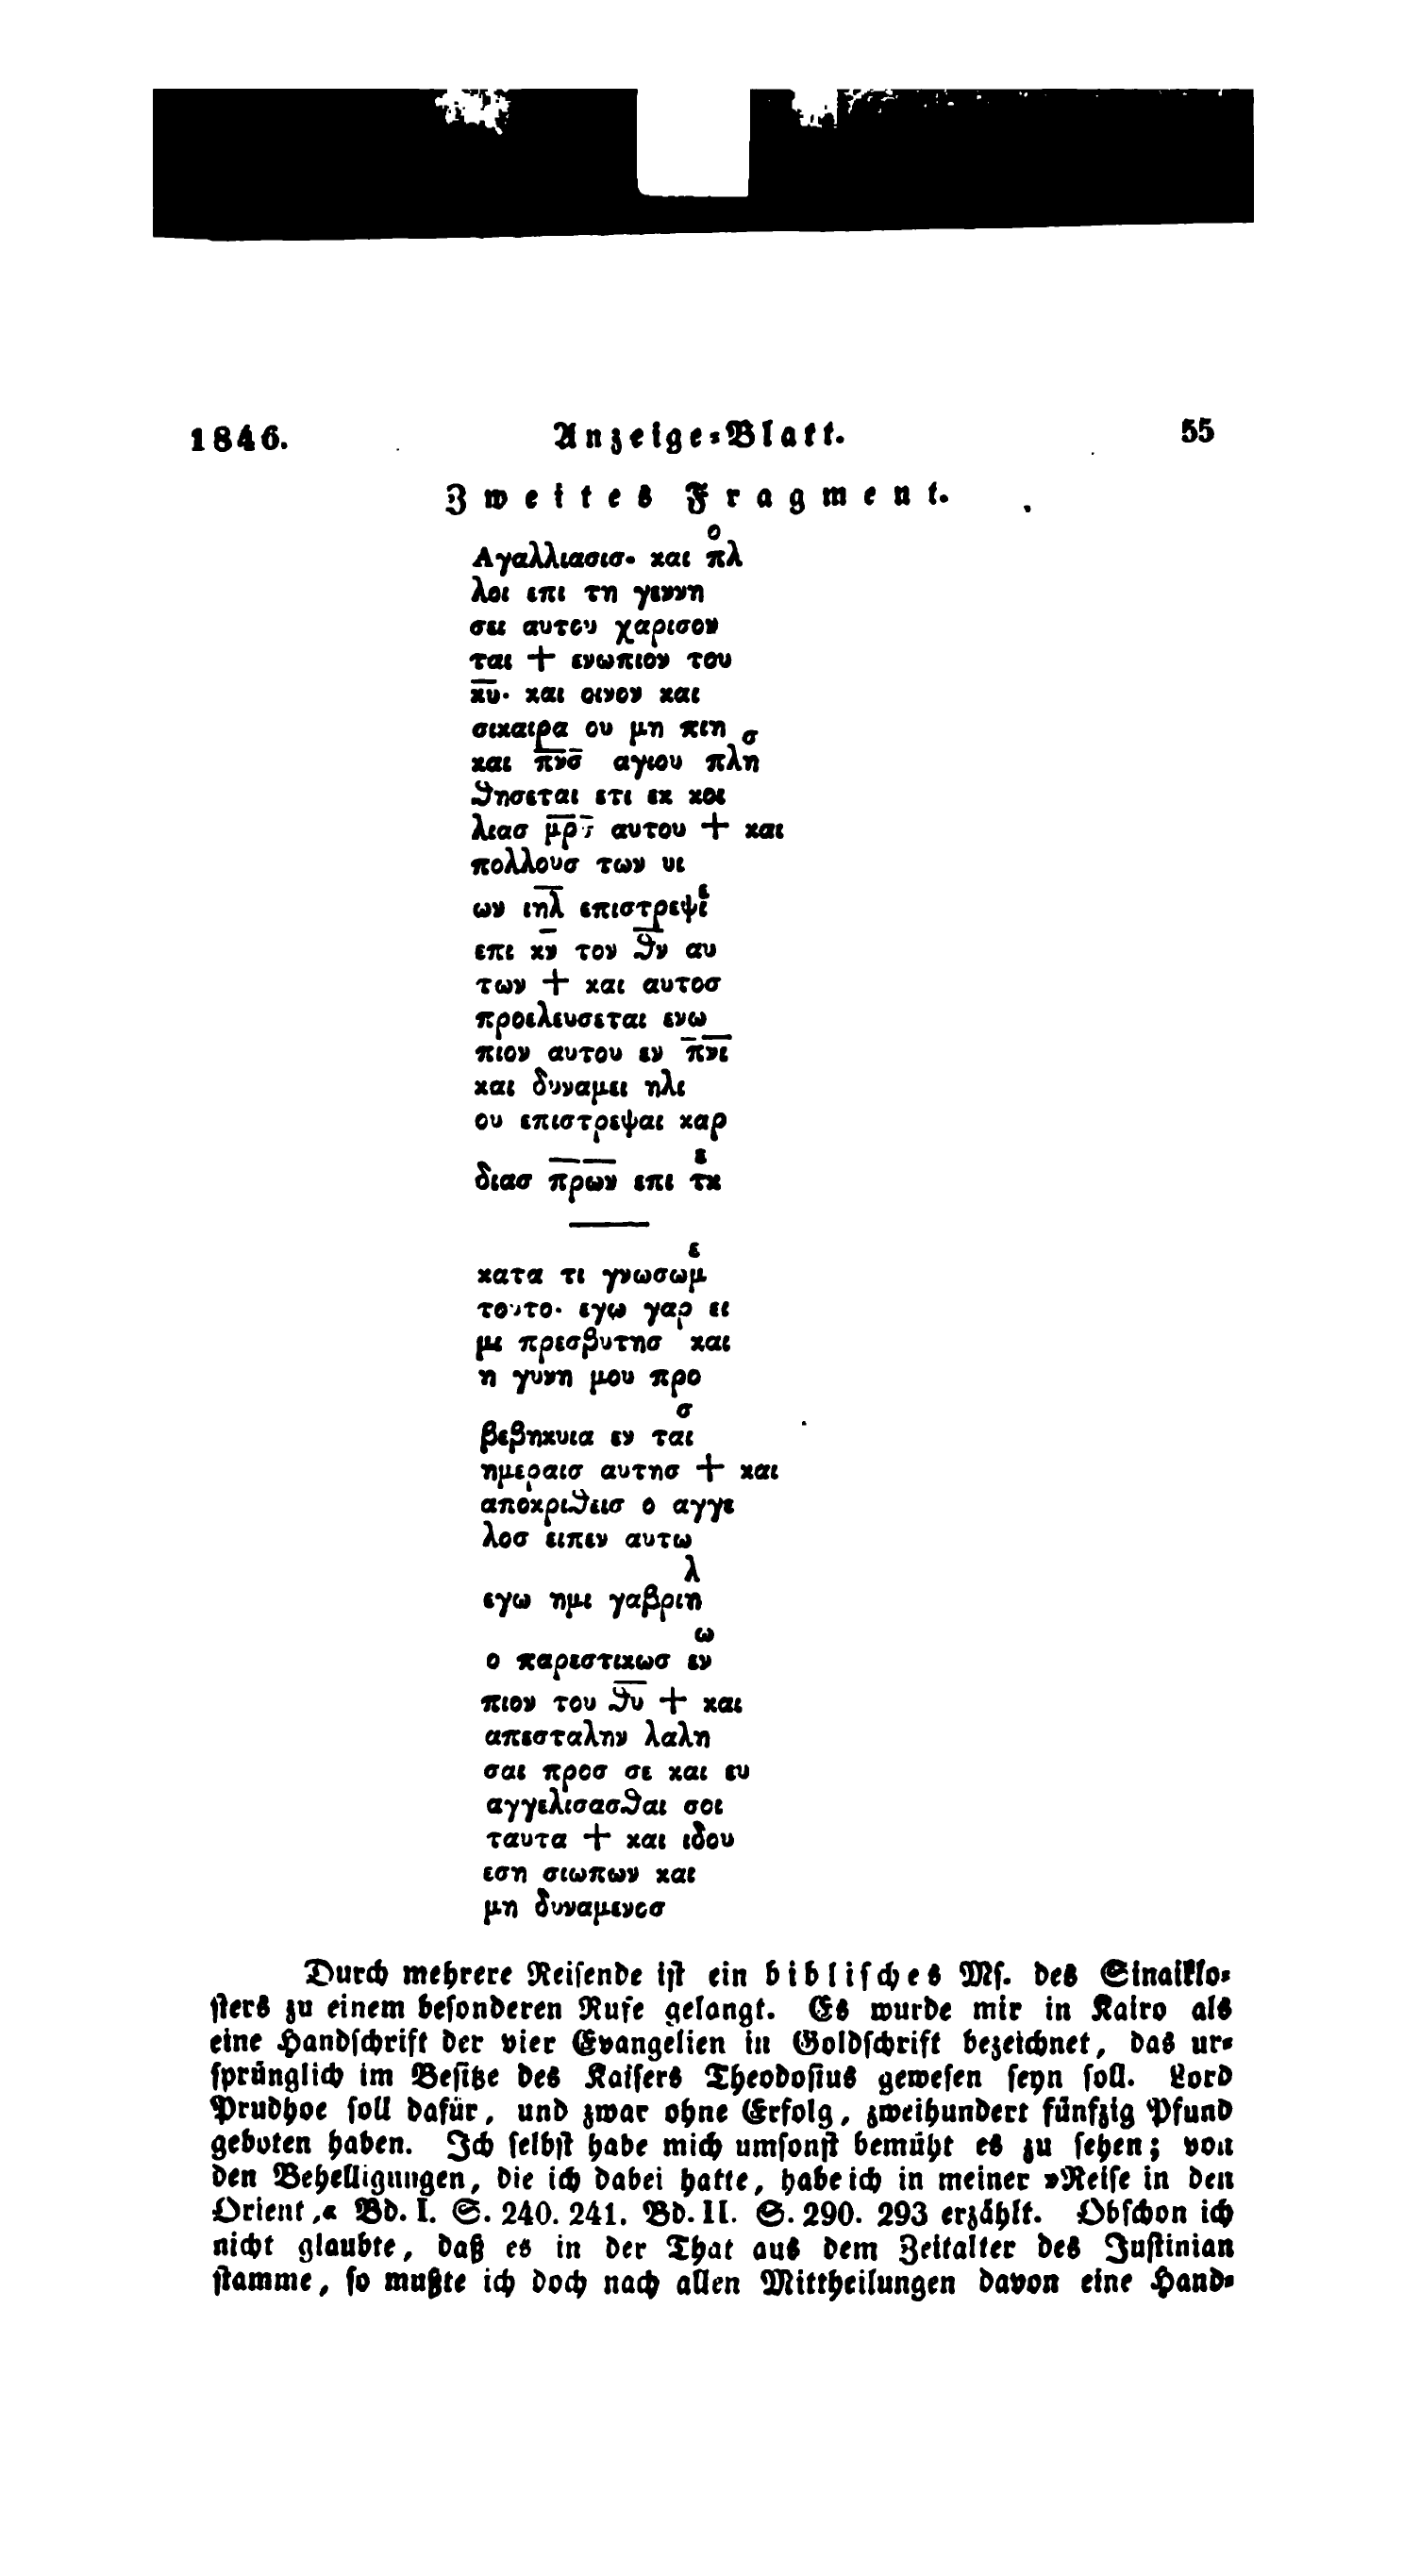 1846. Anzeige-Blatt. 55
Zweites Fragment.
ο
Αγαλλιασισ. και πλ
λοι επι τη γεννη
σει αυτου χαρισον
ται + ενωπιον του
κ̅υ̅· και οινον και
σικαιρα ου μη πιη
σ
και π̅ν̅σ̅ αγιου πλη
θησεται ετι εκ κοι
λιασ μ̅ρ̅σ̅ αυτου + και
πολλουσ των υι
ε
ων ι̅η̅λ̅ επιστρεψι
επι κ̅ν̅ τον θ̅ν̅ αυ
των + και αυτοσ
προελευσεται ενω
πιον αυτου εν π̅ν̅ι̅
και δυναμει ηλι
ου επιστρεψαι καρ
ε
διασ π̅ρ̅ω̅ν̅ επι τκ
ε
κατα τι γνωσωμ
τουτο· εγω γαρ ει
μι πρεσβυτησ και
η γυνη μου προ
σ
βεβηκυια εν ται
ημεραισ αυτησ + και
αποκριθεισ ο αγγε
λοσ ειπεν αυτω
λ
εγω ημι γαβριη
ω
ο παρεστικωσ εν
πιον του θ̅υ̅ + και
απεσταλην λαλη
σαι προσ σε και ευ
αγγελισασθαι σοι
ταυτα + και ιδου
εση σιωπων και
μη δυναμενοσ
Durch mehrere Reisende ist ein biblisches Ms. des Sinaiklo-
sters zu einem besonderen Rufe gelangt. Es wurde mir in Kairo als
eine Handschrift der vier Evangelien in Goldschrift bezeichnet, das ur-
sprünglich im Besitze des Kaisers Theodosius gewesen seyn soll. Lord
Prudhoe soll dafür, und zwar ohne Erfolg, zweihundert fünfzig Pfund
geboten haben. Ich selbst habe mich umsonst bemüht es zu sehen; von
den Behelligungen, die ich dabei hatte, habe ich in meiner »Reise in den
Orient,« Bd. I. S. 240. 241. Bd. II. S. 290. 293 erzählt. Obschon ich
nicht glaubte, daß es in der That aus dem Zeitalter des Justinian
stamme, so mußte ich doch nach allen Mittheilungen davon eine Hand-